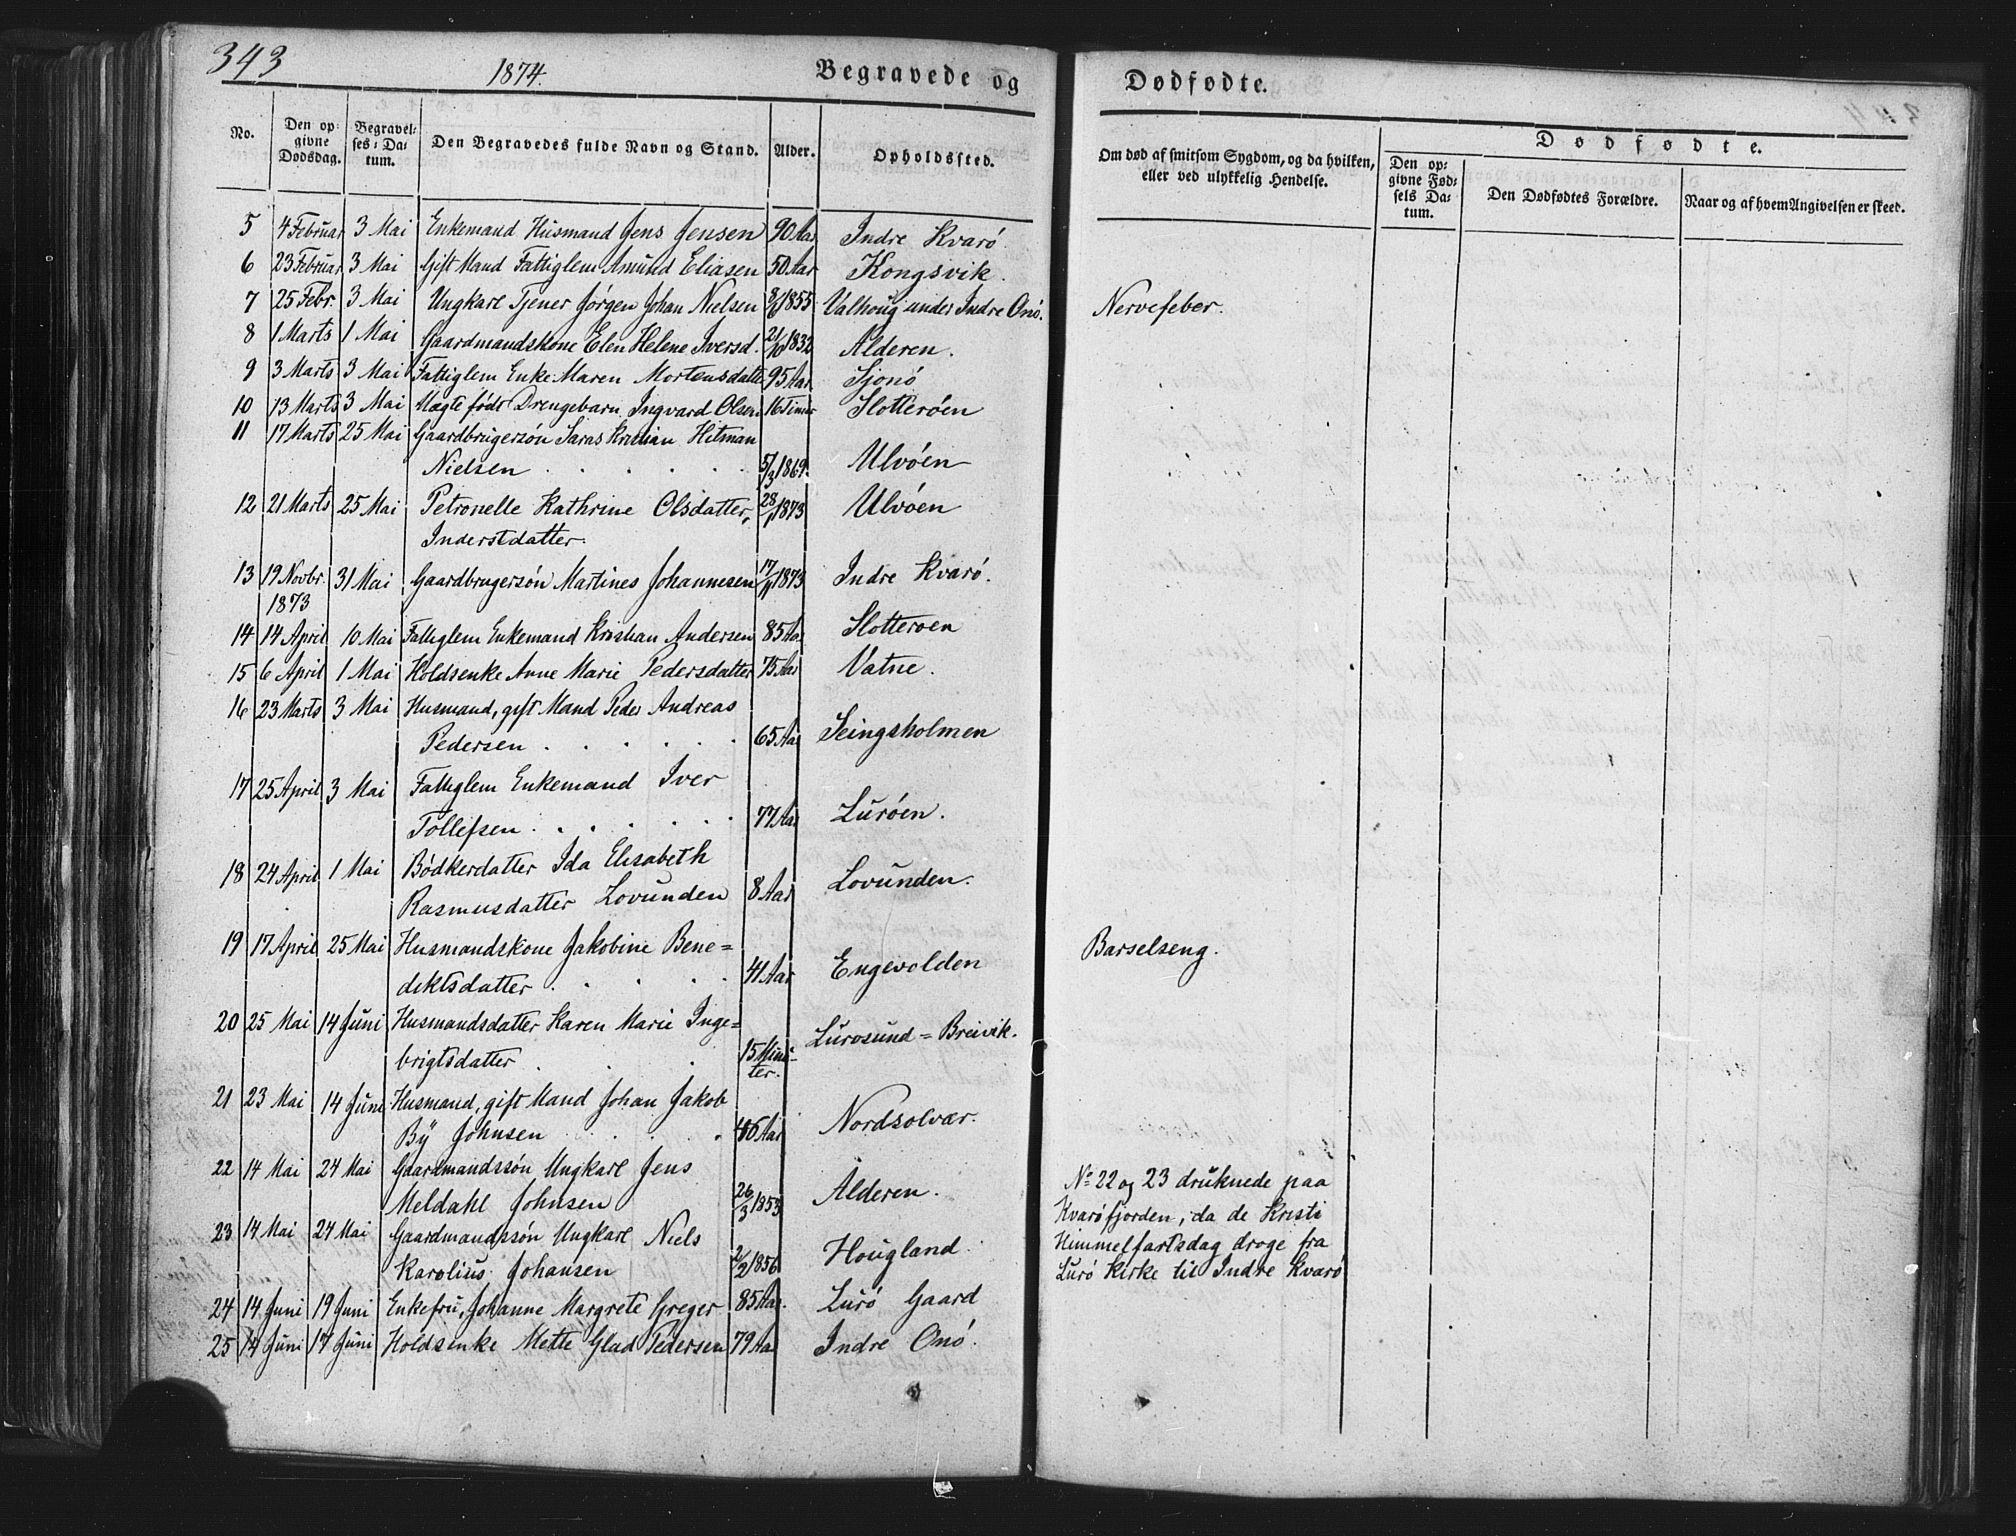 343
1874.
Begravede og
Dødfødte.
No.
Den op-
givne
Dødsdag.
Begravel-
ses-Da-
tum.
Den Begravedes fulde Navn og Stand.
Alder.
Opholdssted.
Om død af smitsom Sygdom, og da hvilken,
eller ved ulykkelig Hendelse.
Dødfødte.
Den op-
givne Fød-
sels Da-
tum.
Den Dødfødtes Forældre.
Naar og af hvem Angivelsen er skeet.
5 4 Februar 3 Mai Enkemand Husmand Jens Jensen 90 Aar Indre Kvarø
6 23 Februar 3 Mai Gift Mand Fattiglem Amund Eliasen 50 Aar Kongsvik.
7 25 Febr. 3 Mai Ungkarl Tjener Jørgen Johan Nielsen 1855 Valhoug under Indre Onø. Nervefeber.
8 1 Marts 1 Mai Gaardmandskone Elen Helene Iversd. 21/10 1832 Alderen.
9 3 Marts 3 Mai Fattiglem Enke Maren Mortensdatte 95 Aar Sjonø
10 13 Marts 3 Mai Uægte født Drengebarn Ingvard Olsen 16 Timer Slotterøen
11 17 Marts 25 Mai Gaardbrugersøn Saras Kristian Hitman
Nielsen . . . . . . 5/3 1869. Ulvøen
12 21 Marts 25 Mai Petronelle Kathrine Olsdatter, 28/1 1873 Ulvøen
Inderstdatter.
13 19 Novbr. 31 Mai Gaardbrugersøn Martines Johannesen 17/11 1873 Indre Kvarø.
1873
14 14 April 10 Mai Fattiglem Enkemand Kristian Andersen 85 Aar Slotterøen
15 6 April 1 Mai Holdsenke Anne Marie Pedersdatter 75 Aar Vatne.
16 23 Marts 3 Mai Husmand, gift Mand Peder Andreas
Pedersen . . . . . . 65 Aar Seingsholmen
17 25 April 3 Mai Fattiglem Enkemand Iver
Tollefsen . . . . . . 77 Aar Lurøen.
18 24 April 1 Mai Bødkerdatter Ida Elisabeth
Rasmusdatter Lovunden 8 Aar Lovunden.
19 17 April 25 Mai Husmandskone Jakobine Bene= Barselseng.
diktsdatter . . . . 41 Aar Engevolden
20 25 Mai 14 Juni Husmandsdatter Karen Marie Inge=
brigtsdatter . . . 15 Minu- Lurøsund=Breivik.
ter.
21 23 Mai 14 Juni Husmand, gift Mand Johan Jakob
By Johnsen . . . . 46 Aar Nordsolvær.
22 14 Mai 24 Mai Gaardmandssøn Ungkarl Jens
Meldahl Johnsen 26/3 1853 Alderen.
23 14 Mai 24 Mai Gaardmandssøn Ungkarl Niels
Karolius Johansen 2/2 1856 Hougland.
No 22 og 23 druknede paa
Kvarøfjorden, da de Kristi
Himmelfartsdag droge fra
Lurø Kirke til Indre Kvarø
24 14 Juni 19 Juni Enkefru, Johanne Margrete Greger 85 Aar. Lurø Gaard
25 14 Juni 17 Juni Holdsenke Mette Glad Pedersen 79 Aar Indre Onø.